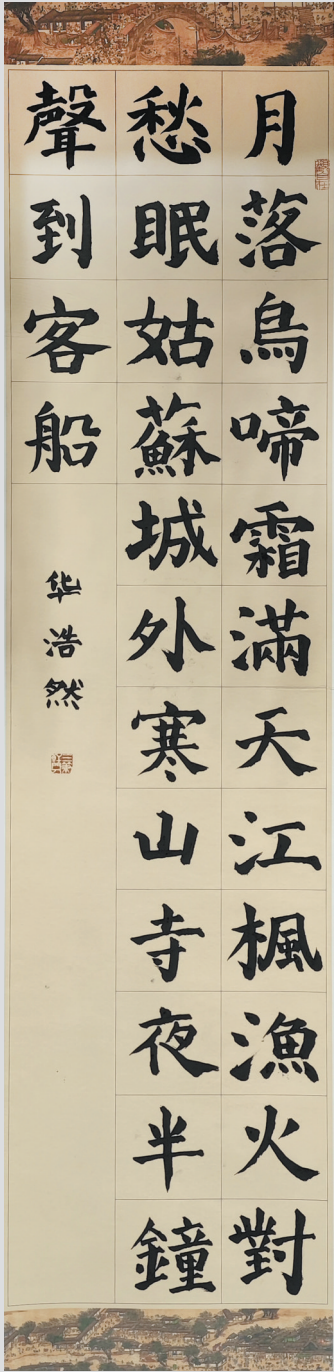 月落烏啼霜滿天江楓漁火對
愁眠姑蘇城外寒山寺夜半鐘
聲到客船
华浩然